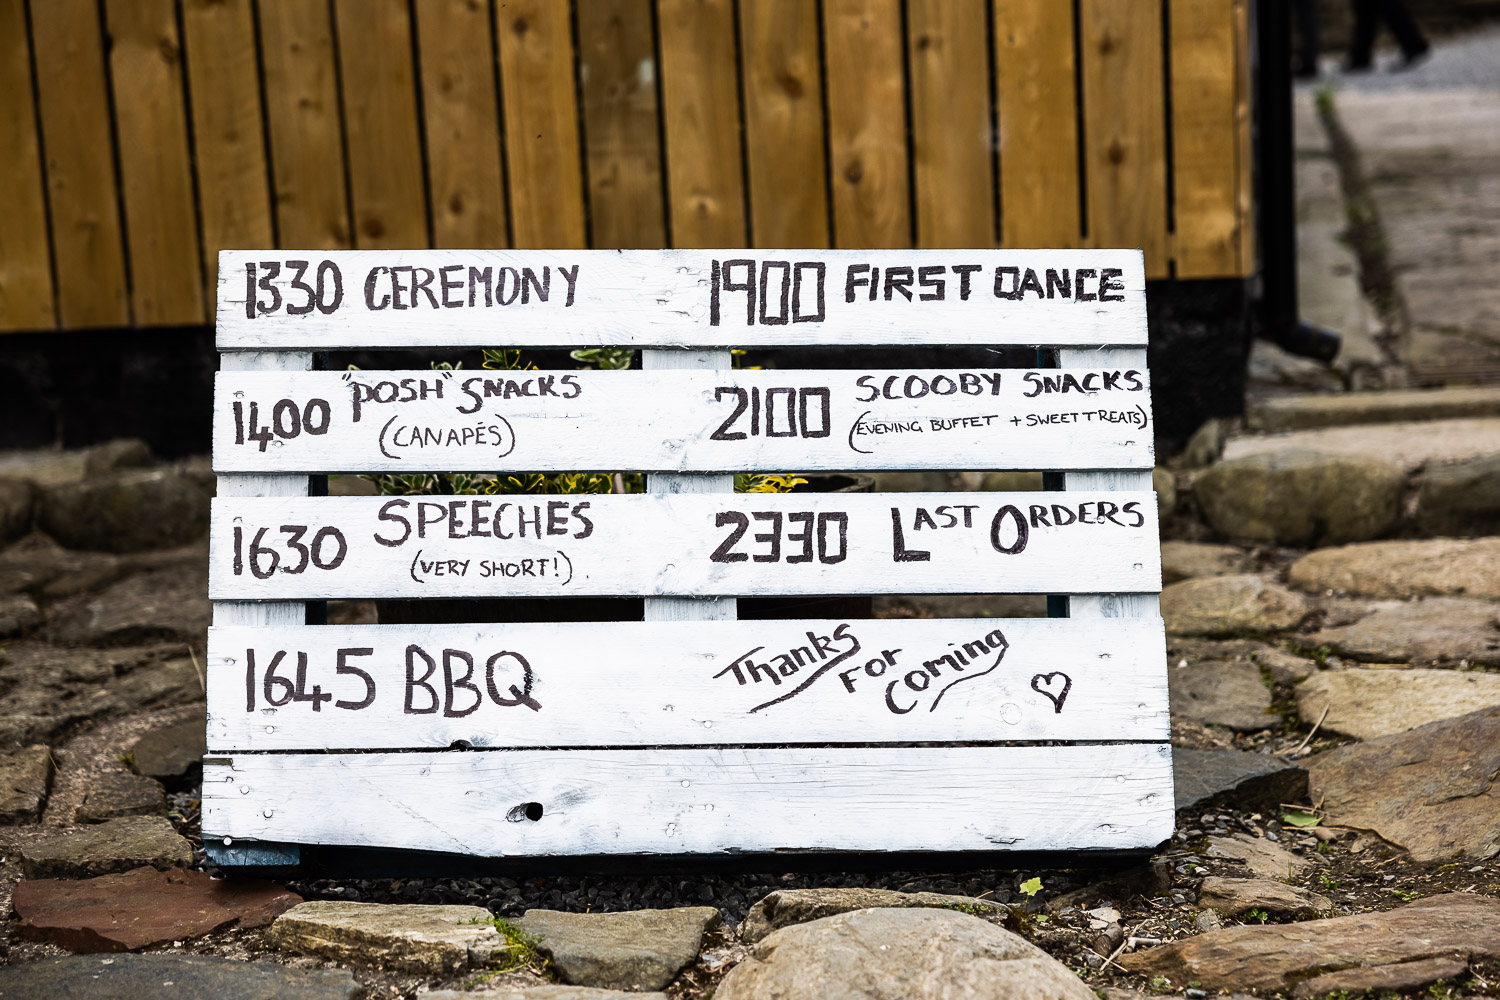 1330 CEREMONY
1400 "POSH" SNACKS
(CANAPÉS)
1630 SPEECHES
(VERY SHORT!)
1645 BBQ
1900 FIRST DANCE
2100 SCOOBY SNACKS
(EVENING BUFFET + SWEET TREATS)
2330 LAST ORDERS
Thanks For Coming ♡